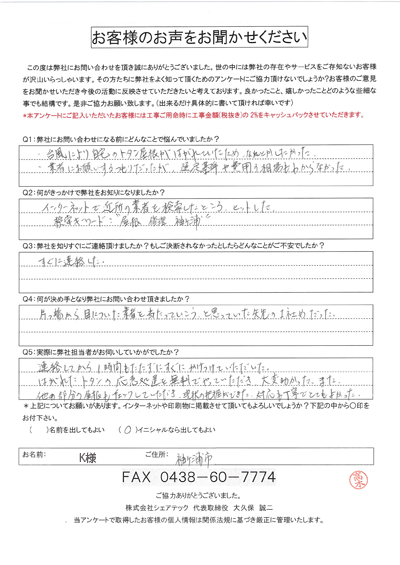 お客様のお声をお聞かせください
この度は弊社にお問い合わせを頂き誠にありがとうございました。世の中には弊社の存在やサービスをご存知ないお客様
が沢山いらっしゃいます。その方たちに弊社をよく知って頂くためのアンケートにご協力頂けないでしょうか?お客様のご意見
をお聞かせいただき今後の活動に反映させていただきたいと考えております。良かったこと、嬉しかったことどのような些細な
事でも結構です。是非ご協力お願い致します。(出来るだけ具体的に書いて頂ければ幸いです)
*本アンケートにご記入いただいたお客様には工事ご用命時に工事金額(税抜き)の2%をキャッシュバックさせていただきます。
Q1:弊社にお問い合わせになる前どんなことで悩んでいましたか?
・台風により自宅のトタン屋根がはがれていたため なおしたかった。
・業者にお願いするつもりだったが、選定基準や費用の相場がわからなかった。
Q2:何がきっかけで弊社をお知りになりましたか?
インターネットで近所の業者を検索したところ、ヒットした。
検索キーワード:"屋根 修理 袖ヶ浦"
Q3:弊社を知りすぐにご連絡頂けましたか?もしご決断されなかったとしたらどんなことがご不安でしたか?
すぐに連絡した。
Q4:何が決め手となり弊社にお問い合わせ頂きましたか?
片っ端から目についた業者を当たっていこう、と思っていた矢先の1社めだった。
Q5:実際に弊社担当者がお伺いしていかがでしたか?
連絡してから1時間もたたずにすぐに、かけつけていただいた。
はがれたトタンの応急処置を無料でやっていただき、大変助かった。また、
他の部分の屋根もチェックしていただき、現状の把握ができた。対応も丁寧でとてもよかった。
*上記についてお願いがあります。インターネットや印刷物に掲載させて頂いてもよろしいでしょうか?下記の中から〇印を
お付け下さい。
( )名前を出してもよい (〇)イニシャルなら出してもよい
お名前: K様 ご住所: 袖ヶ浦市
FAX 0438-60-7774
ご協力ありがとうございました。
株式会社シェアテック 代表取締役 大久保 誠二
当アンケートで取得したお客様の個人情報は関係法規に基づき厳正に管理いたします。